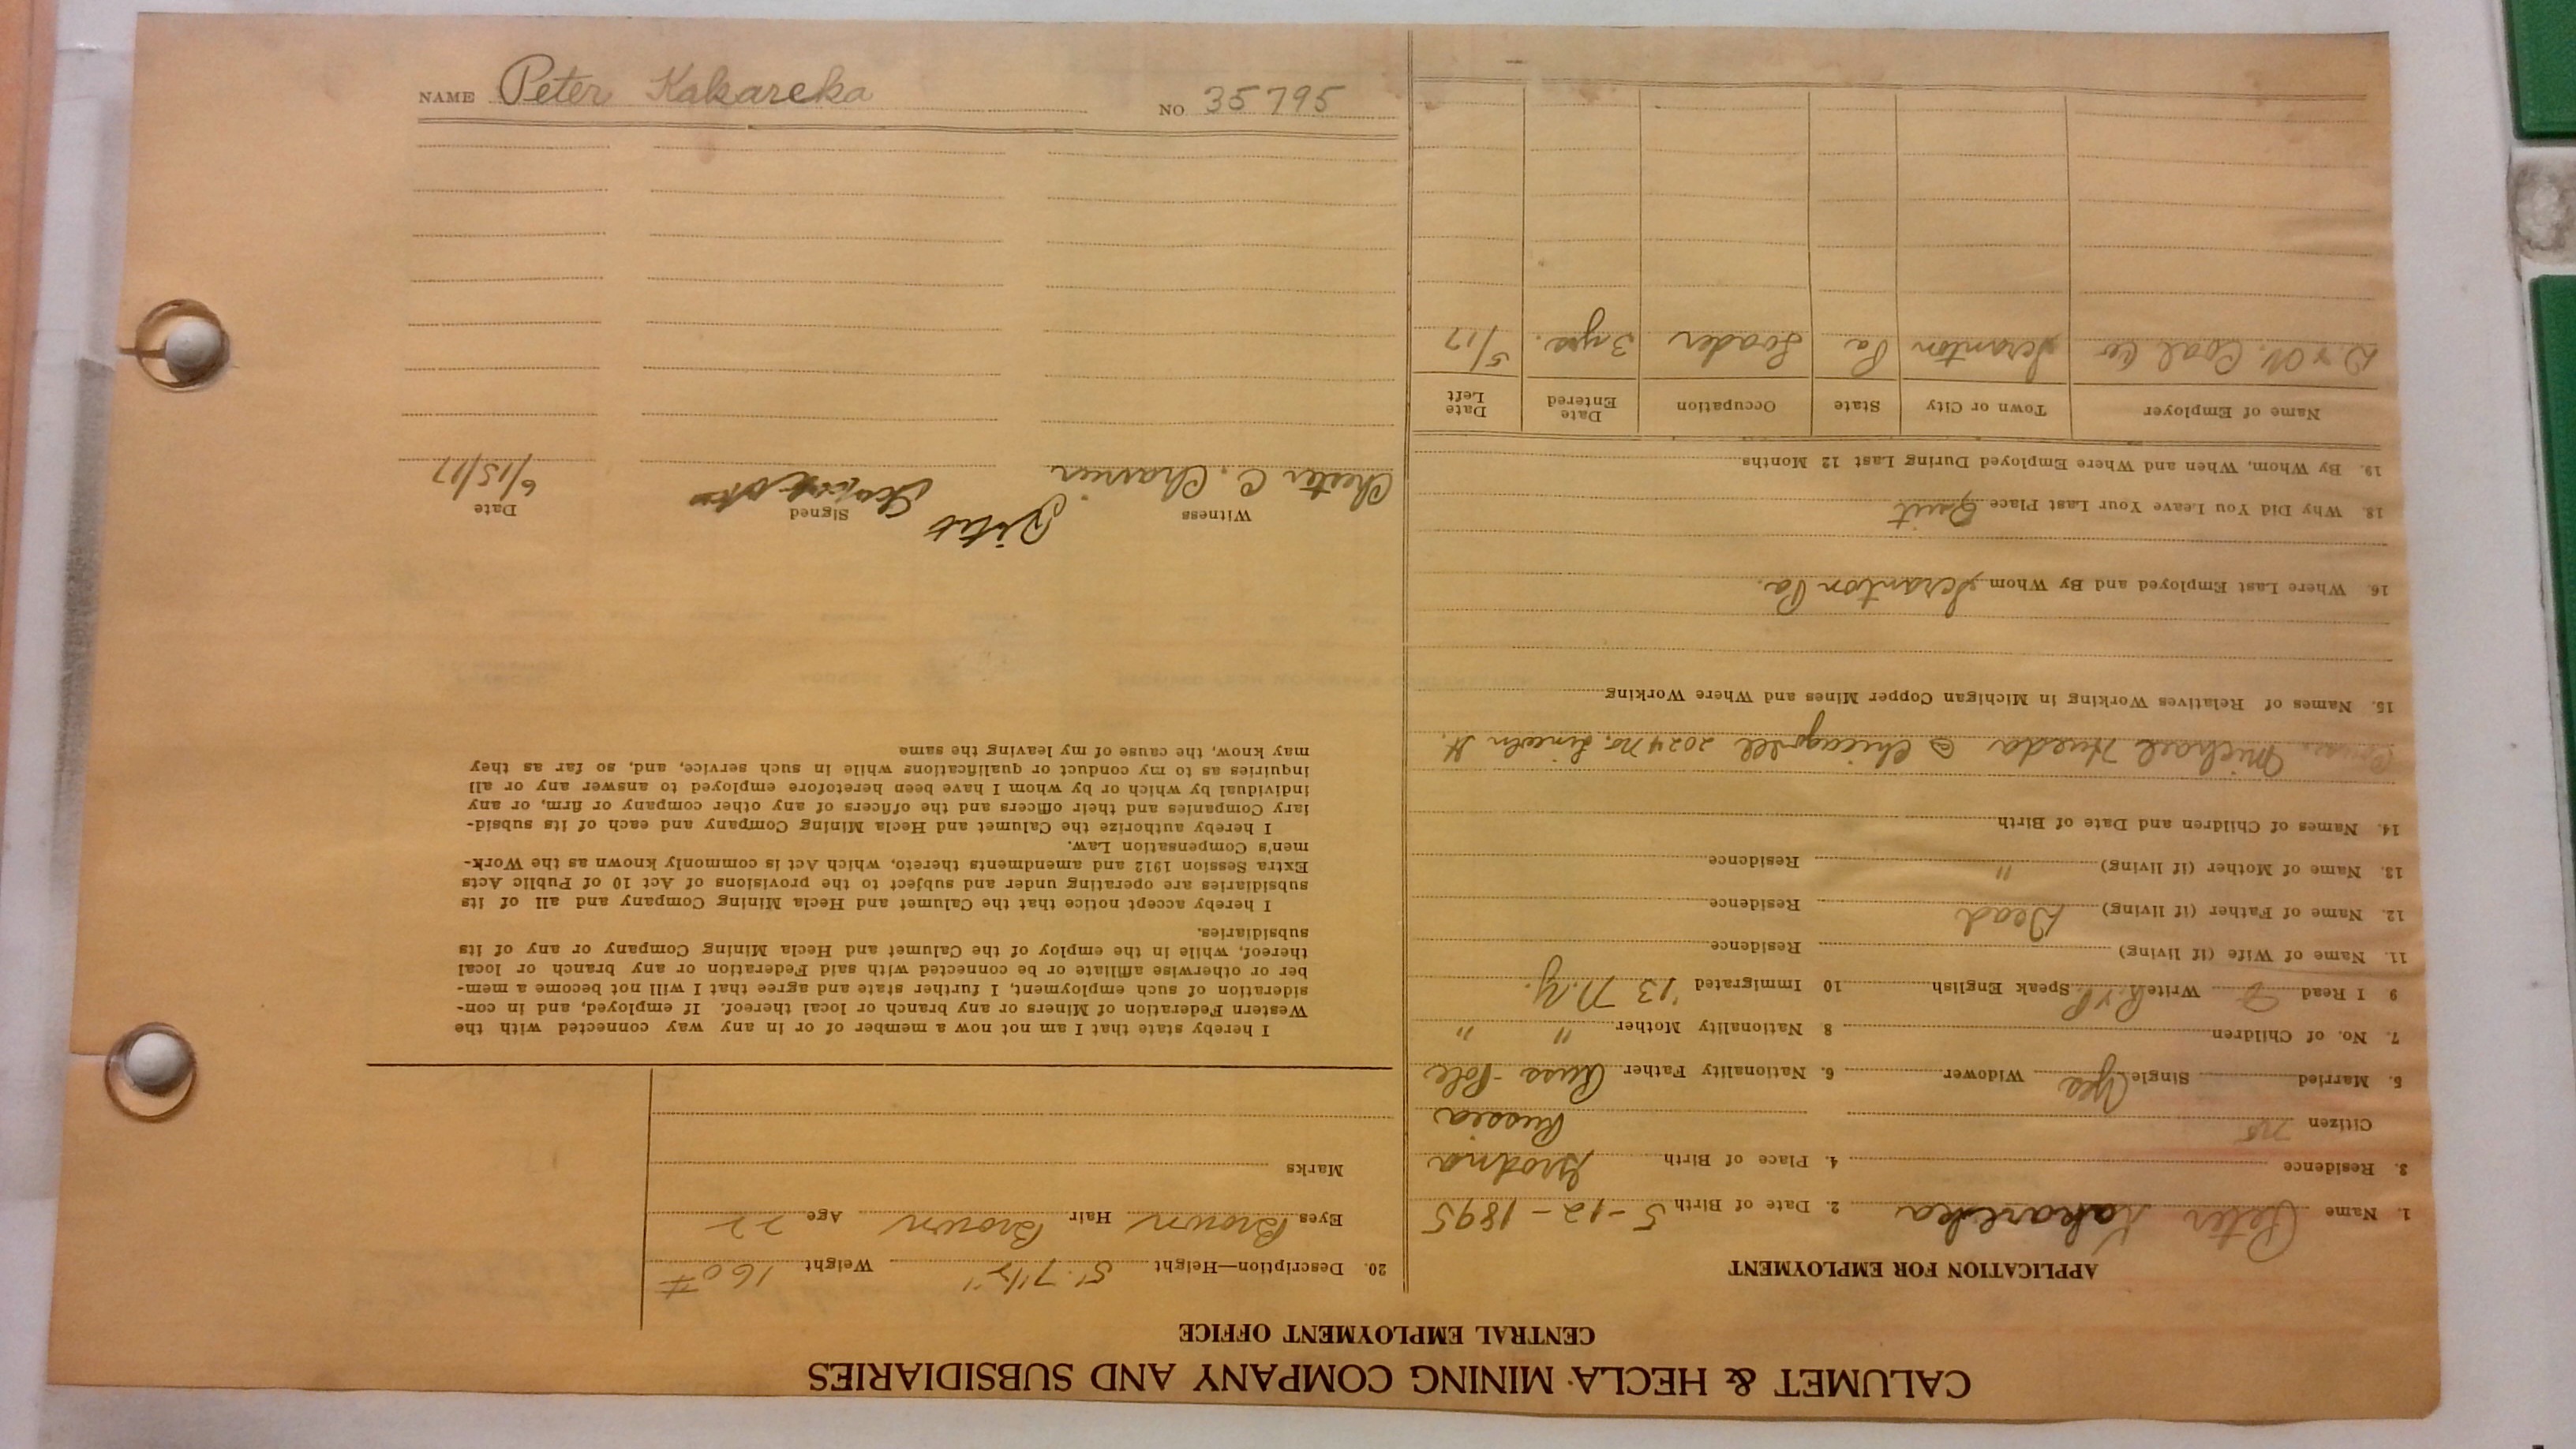 CALUMET & HECLA MINING COMPANY AND SUBSIDIARIES
CENTRAL EMPLOYMENT OFFICE
APPLICATION FOR EMPLOYMENT
1. Name Peter Kakareka 2. Date of Birth 5-12-1895
3. Residence 4. Place of Birth Grodna
Citizen no Russia
5. Married Single Yes Widower 6. Nationality Father Russ-Pole
7. No. of Children 8 Nationality Mother " "
9 I Read Write R & P Speak English 10 Immigrated '13 N.Y.
11. Name of Wife (if living) Residence
12. Name of Father (if living) Dead Residence
13. Name of Mother (if living) " Residence
14. Names of Children and Date of Birth
Michael Chicago Ill 2024 No. Lincoln St.
15. Names of Relatives Working in Michigan Copper Mines and Where Working
16. Where Last Employed and By Whom Scranton Pa.
18. Why Did You Leave Your Last Place Quit
19. By Whom, When and Where Employed During Last 12 Months
Name of Employer Town or City State Occupation Date Entered Date Left
Coal Co Scranton Pa Loader 3 yrs. 5/17
20. Description—Height 5' 7 1/2" Weight 160 #
Eyes Brown Hair Brown Age 22
Marks
I hereby state that I am not now a member of or in any way connected with the
Western Federation of Miners or any branch or local thereof. If employed, and in con-
sideration of such employment, I further state and agree that I will not become a mem-
ber or otherwise affiliate or be connected with said Federation or any branch or local
thereof, while in the employ of the Calumet and Hecla Mining Company or any of its
subsidiaries.
I hereby accept notice that the Calumet and Hecla Mining Company and all of its
subsidiaries are operating under and subject to the provisions of Act 10 of Public Acts
Extra Session 1912 and amendments thereto, which Act is commonly known as the Work-
men's Compensation Law.
I hereby authorize the Calumet and Hecla Mining Company and each of its subsid-
iary Companies and their officers and the officers of any other company or firm, or any
individual by which or by whom I have been heretofore employed to answer any or all
inquiries as to my conduct or qualifications while in such service, and, so far as they
may know, the cause of my leaving the same
Witness Signed Date
Chester C. 6/15/17
NAME Peter Kakareka NO 35795